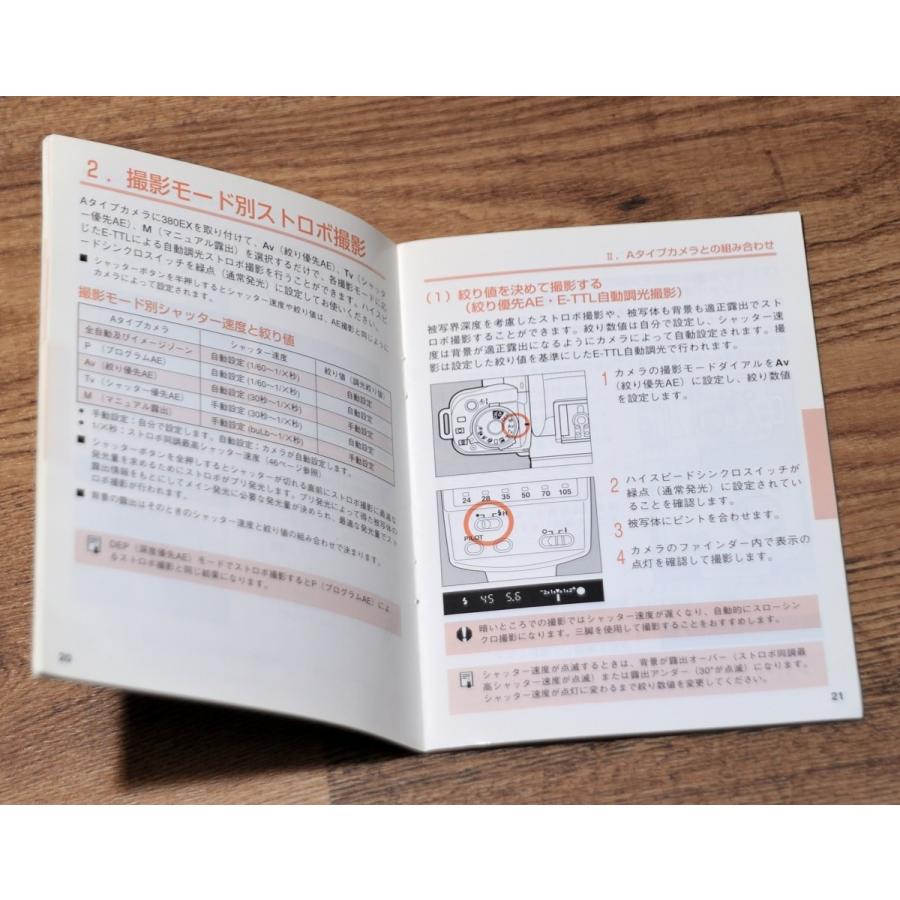 2．撮影モード別ストロボ撮影
Aタイプカメラに380EXを取り付けて、Av（絞り優先AE）、Tv（シャッタ
ー優先AE）、M（マニュアル露出）を選択するだけで、各撮影モードに応
じたE-TTLによる自動調光ストロボ撮影を行うことができます。ハイスピ
ードシンクロスイッチを緑点（通常発光）に設定してお使いください。
■ シャッターボタンを半押しするとシャッター速度や絞り値は、AE撮影と同じように
カメラによって設定されます。
撮影モード別シャッター速度と絞り値
Aタイプカメラ シャッター速度 絞り値（調光絞り値）
全自動及びイメージゾーン 自動設定 (1/60〜1/X秒) 自動設定
P （プログラムAE） 自動設定 (1/60〜1/X秒) 自動設定
Av（絞り優先AE） 自動設定 (30秒〜1/X秒) 手動設定
Tv（シャッター優先AE） 手動設定 (30秒〜1/X秒) 自動設定
M （マニュアル露出） 手動設定 (buLb〜1/X秒) 手動設定
● 手動設定：自分で設定します。自動設定：カメラが自動設定します。
● 1/X秒：ストロボ同調最高シャッター速度（46ページ参照）
■ シャッターボタンを全押しするとシャッターが切れる直前にストロボ撮影に最適な
発光量を求めるためにストロボがプリ発光します。プリ発光によって得た被写体の
露出情報をもとにしてメイン発光に必要な発光量が決められ、最適な発光量でスト
ロボ撮影が行われます。
■ 背景の露出はそのときのシャッター速度と絞り値の組み合わせで決まります。
DEP（深度優先AE）モードでストロボ撮影するとP（プログラムAE）によ
るストロボ撮影と同じ結果になります。
20
II．Aタイプカメラとの組み合わせ
（1）絞り値を決めて撮影する
（絞り優先AE・E-TTL自動調光撮影）
被写界深度を考慮したストロボ撮影や、被写体も背景も適正露出でスト
ロボ撮影することができます。絞り数値は自分で設定し、シャッター速
度は背景が適正露出になるようにカメラによって自動設定されます。撮
影は設定した絞り値を基準にしたE-TTL自動調光で行われます。
1 カメラの撮影モードダイアルをAv
（絞り優先AE）に設定し、絞り数値
を設定します。
24 28 35 50 70 105
PILOT
45 5.6
2 ハイスピードシンクロスイッチが
緑点（通常発光）に設定されている
ことを確認します。
3 被写体にピントを合わせます。
4 カメラのファインダー内で表示の
点灯を確認して撮影します。
暗いところでの撮影ではシャッター速度が遅くなり、自動的にスローシン
クロ撮影になります。三脚を使用して撮影することをおすすめします。
シャッター速度が点滅するときは、背景が露出オーバー（ストロボ同調最
高シャッター速度が点滅）または露出アンダー（30"が点滅）になります。
シャッター速度が点灯に変わるまで絞り数値を変更してください。
21